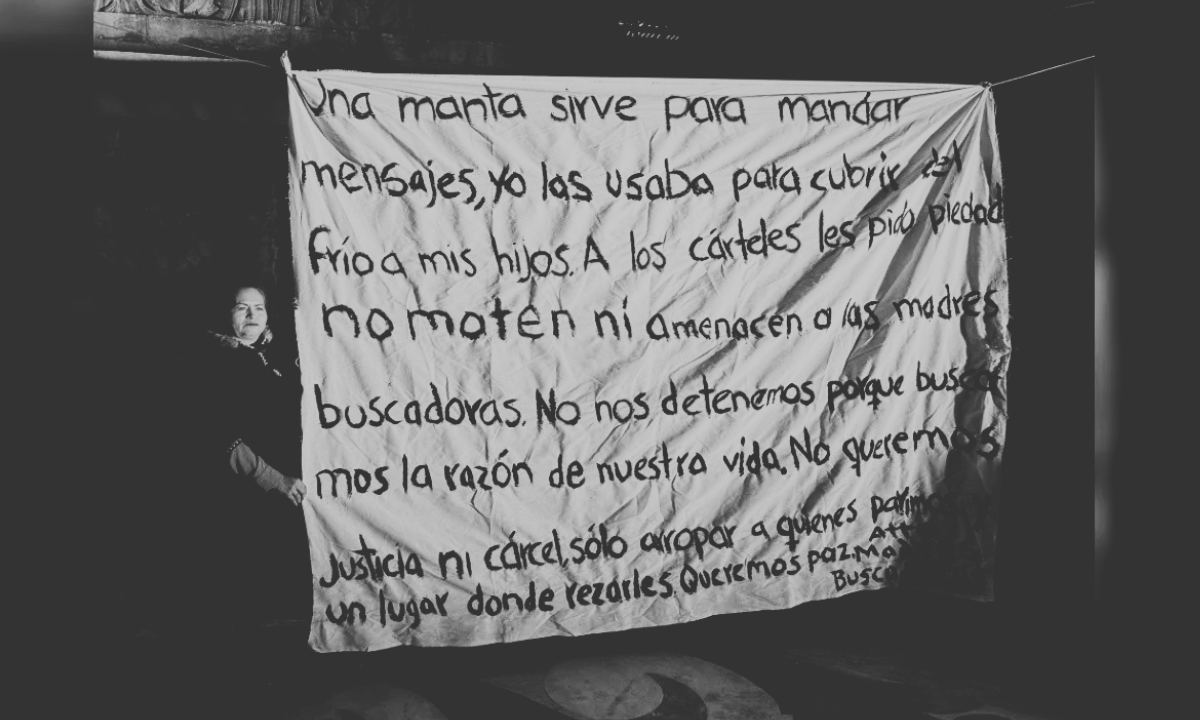 Una manta sirve para mandar
mensajes, yo las usaba para cubrir del
frío a mis hijos. A los cárteles les pido piedad
no maten ni amenacen a las madres
buscadoras. No nos detenemos porque busca
mos la razón de nuestra vida. No queremos
Justicia ni cárcel, sólo arropar a quienes
un lugar donde rezarles. Queremos paz.